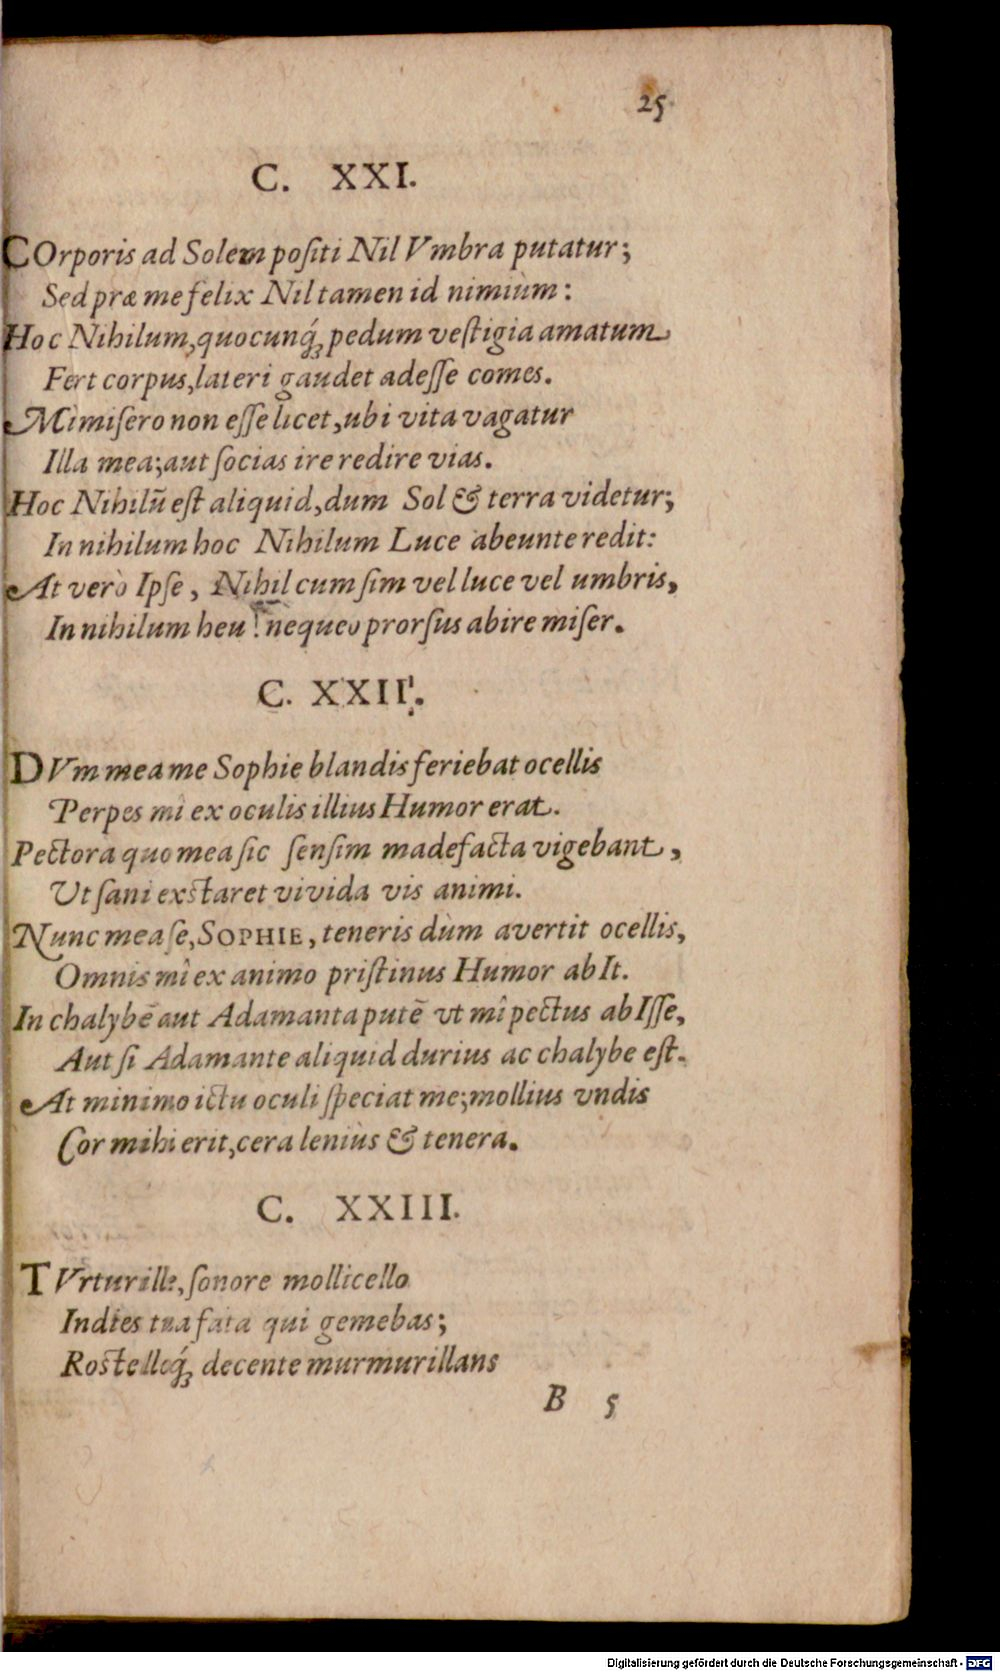 25
C. XXI.
COrporis ad Solem poſiti Nil Vmbra putatur;
Sed præ me felix Nil tamen id nimiùm:
Hoc Nihilum, quocunq́ꝫ pedum veſtigia amatum
Fert corpus, lateri gaudet adeſſe comes.
Mî miſero non eſſe licet, ubi vita vagatur
Illa mea; aut ſocias ire redire vias.
Hoc Nihilũ eſt aliquid, dum Sol & terra videtur;
In nihilum hoc Nihilum Luce abeunte redit:
At verò Ipſe, Nihil cum ſim vel luce vel umbris,
In nihilum heu! nequeo prorſus abire miſer.
C. XXII.
DVm mea me Sophie blandis feriebat ocellis
Perpes mî ex oculis illius Humor erat.
Pectora quo mea ſic ſenſim madefacta vigebant,
Ut ſani exstaret vivida vis animi.
Nunc mea ſe, SOPHIE, teneris dùm avertit ocellis,
Omnis mî ex animo priſtinus Humor ab It.
In chalybẽ aut Adamanta putẽ vt mî pectus ab Iſſe,
Aut ſi Adamante aliquid durius ac chalybe eſt.
At minimo ictu oculi ſpeciat me; mollius vndis
Cor mihi erit, cera leniùs & tenera.
C. XXIII.
TVrturille, ſonore mollicello
Indies tua fata qui gemebas;
Rostelloq́ꝫ decente murmurillans
B 5
Digitalisierung gefördert durch die Deutsche Forschungsgemeinschaft - DFG